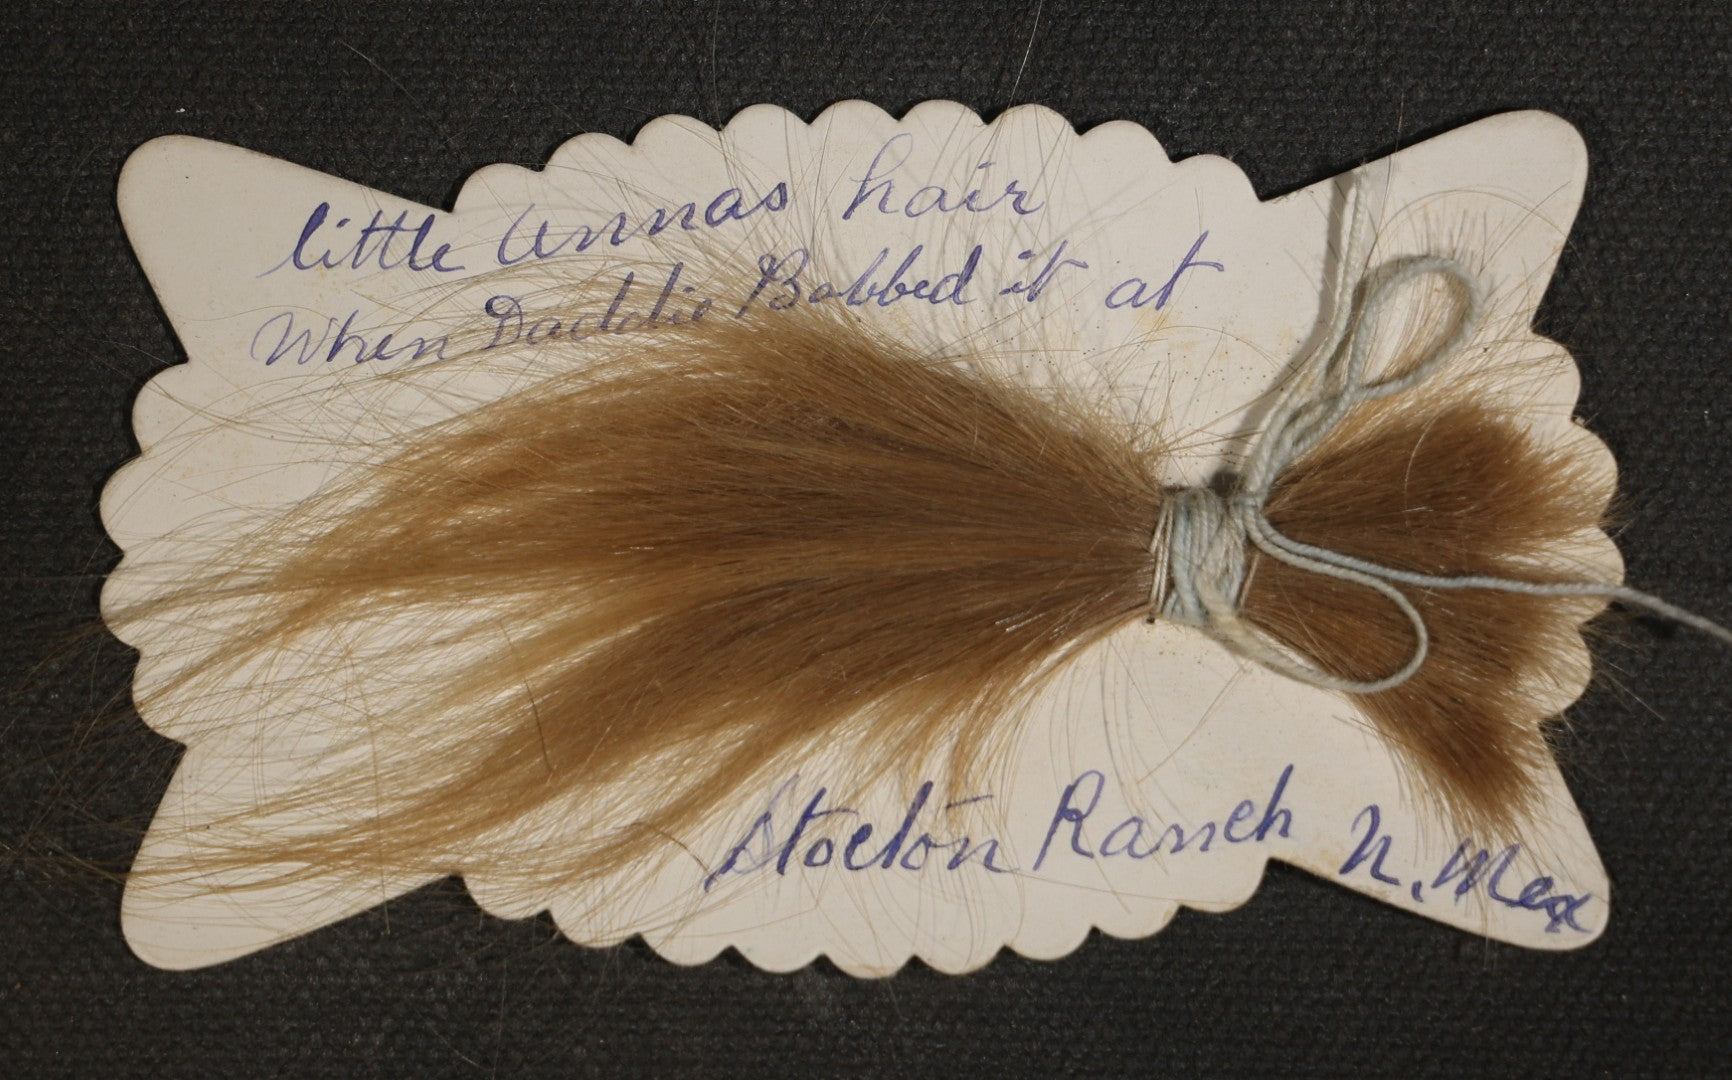 little Annas hair
When Daddie Bobbed it at
Stocton Ranch N. Mex